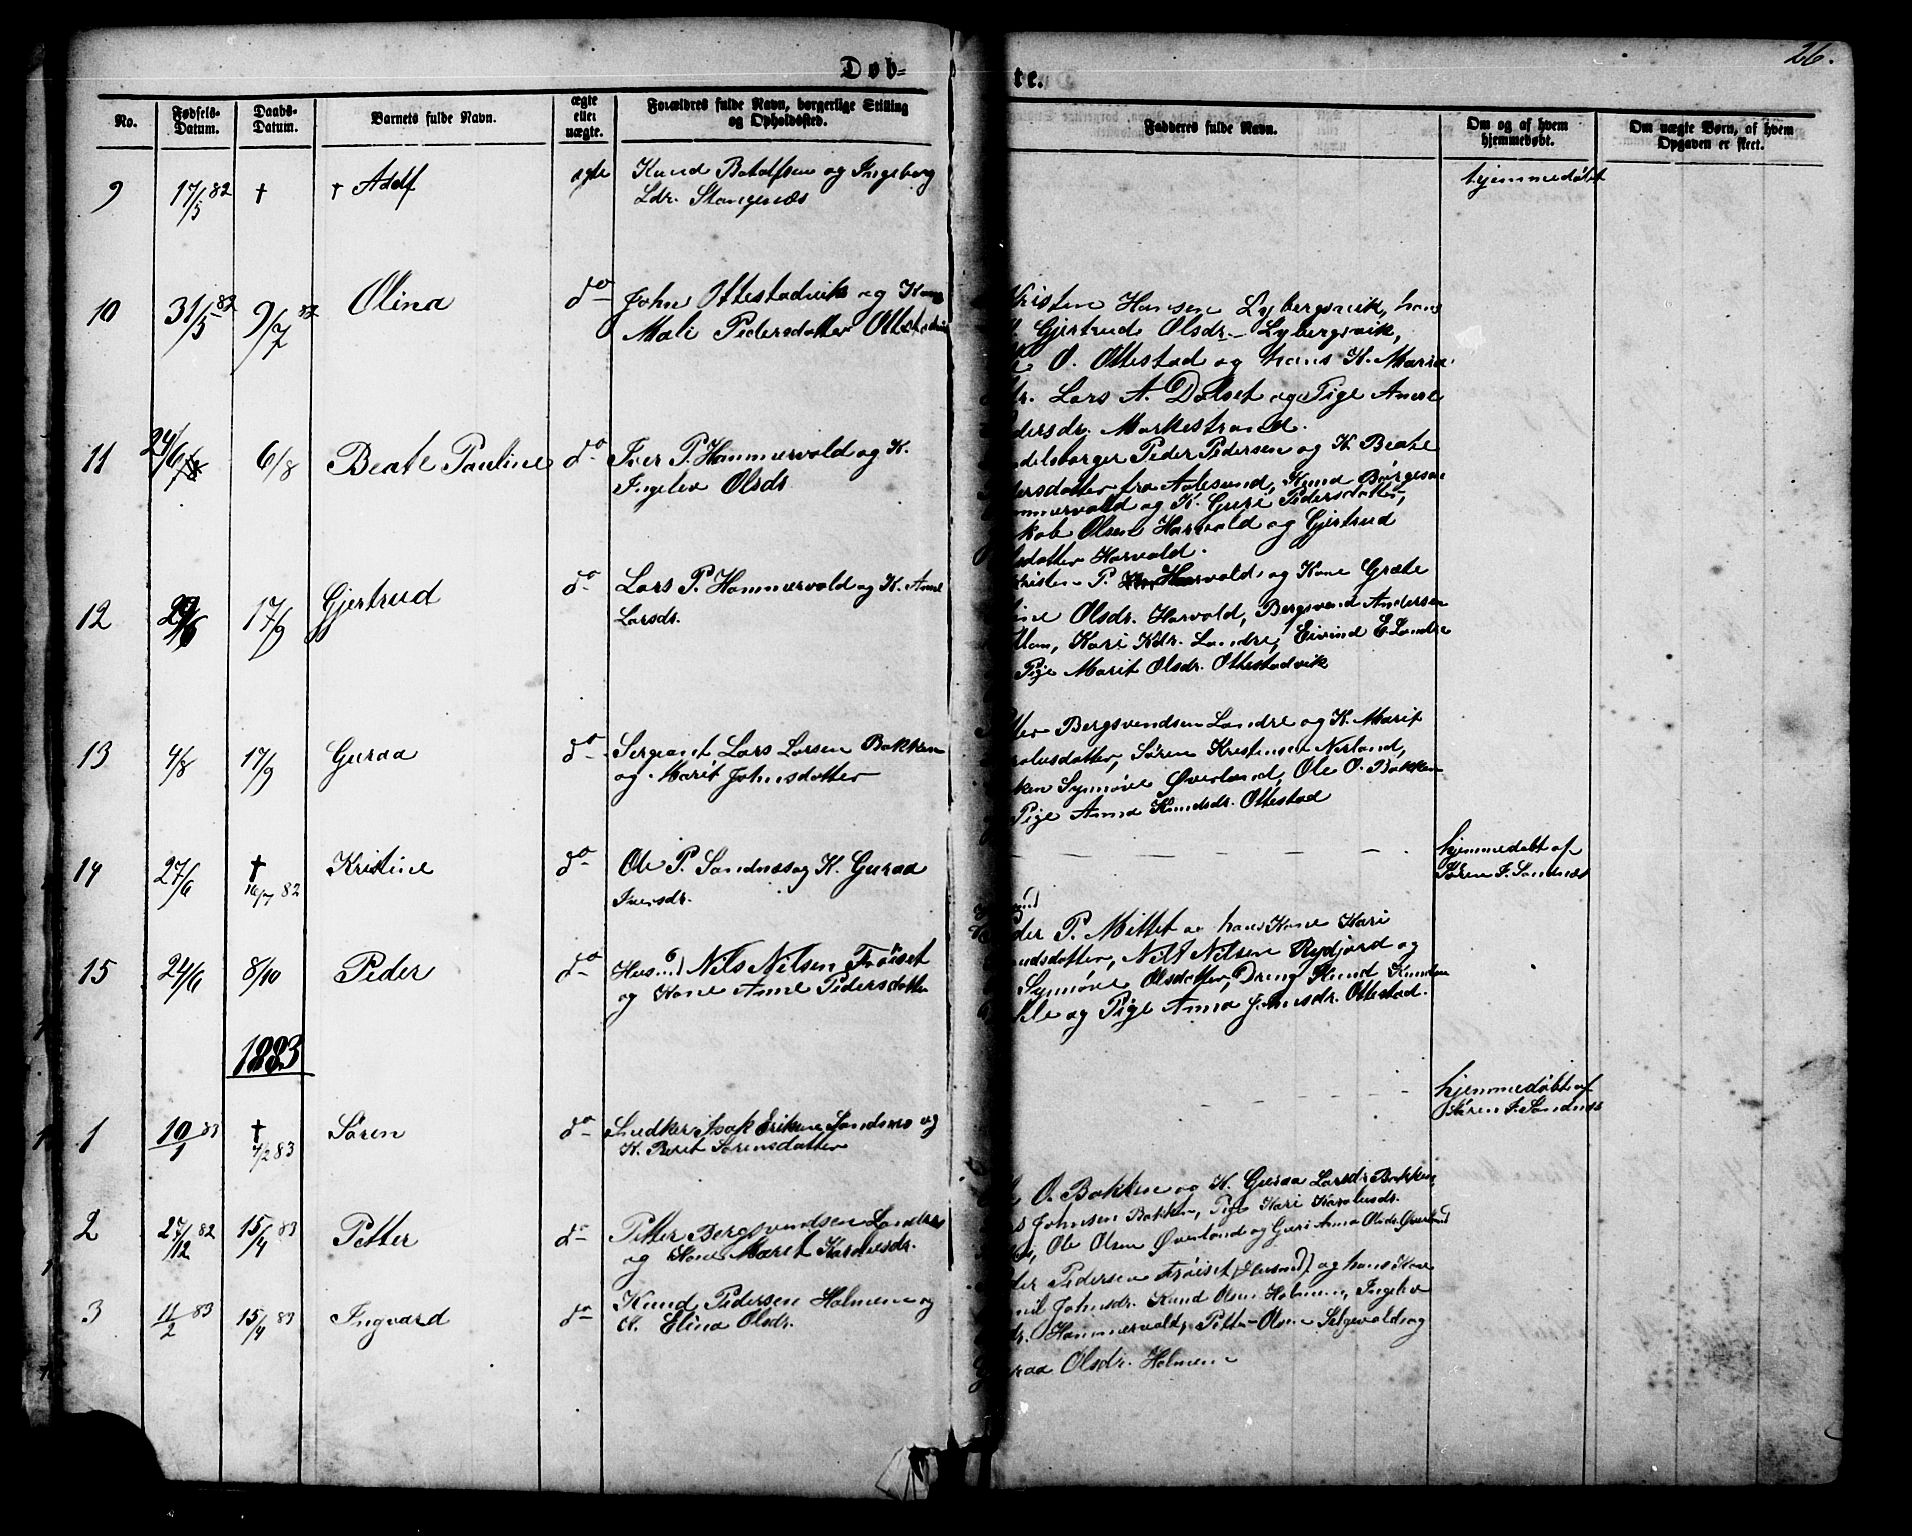 26.
Døb-
te.
No.
Fødsels-
Datum.
Daabs-
Datum.
Barnets fulde Navn.
ægte
eller
uægte.
Forældres fulde Navn, borgerlige Stilling
og Opholdssted.
Fadderes fulde Navn.
Om og af hvem
hjemmedøbt.
Om uægte Børn, af hvem
Opgaven er skeet.
9 17/5 82 † † Adolf ægte Knud Botolfsen og Ingeborg
Ldr. Stangenæs
hjemmedøbt
10 31/5 82 9/7 82 Olina do John Ottestadvik og Kone
Mali Pedersdotter Ottestadvik
Kristen Hansen Lybergsvik, hans
K. Gjertrud Olsdr. Lybergsvik,
O. Ottestad og hans K. Maria
dr. Lars A. Dalset og Pige Anne
Pedersdr. Morkestrand.
11 24/6 6/8 Beate Pauline do Iver P. Hammervold og K.
Ingelev Olsdr.
delsborger Peder Pedersen og K. Beate
dersdotter fra Aalesund, Knud Børgesen
mmervold og K. Guri Pedersdotter,
kob Olsen Harvold og Gjertrud
lsdotter Harvold.
12 17/9 Gjertrud do Lars P. Hammervold og K. Anne
Larsdr.
Kristen P. Harvold og Kone Græte
ine Olsdr. Harvold, Bergsvend Andersen
Kari Kdr. Landre, Eivind E. Landre
Pige Marit Olsdr. Ottestadvik
13 4/8 17/9 Guraa do Sergeant Lars Larsen Bakken
og Marit Johnsdotter
Petter Bergsvendsen Landre og K. Marit
rolusdotter, Søren Kristensen Nerland,
ken Synnøve Øverland, Ole O. Bakken
Pige Anna Knudsdr. Ottestad
14 27/6 † 16/7 82 Kristine do Ole P. Sandnes og K. Guraa
Iversdr.
hjemmedøbt af
Søren I. Sandnes
15 24/6 8/10 Peder do Husmd Nils Nilsen Frøiset
og Kone Anne Pedersdotter
der P. Mittet og hans Kone Kari
udsdotter, Nils Nilsen Rydjord og
Synnøve Olsdotter, Dreng Knud Knudsen
og Pige Anna Johnsdr. Ottestad.
1883
1 10/1 83 † 7/2 83 Søren do Snedker Isak Eriksen Sandnes og
K. Berit Sørensdotter
hjemmedøbt af
Søren I. Sandnes
2 27/12 82 15/4 83 Petter do Petter Bergsvendsen Landre
og Kone Marit Karolusdr.
O. Bakken og K. Guraa Larsdr. Bakken,
s Johnsen Bakken, Pige Kari Karolusdr.
Ole Olsen Øverland og Guri Anna Olsdr. Øverland
3 11/2 83 15/4 83 Ingvard do Knud Pedersen Holmen og
K. Elina Olsdr.
der Pedersen Frøiset (Husmd) og hans Kone
nil Johnsdr. Knud Olsen Holmen, Ingelev
dr. Hammervold, Petter Olsen Selgevold og
Guraa Olsdr. Holmen